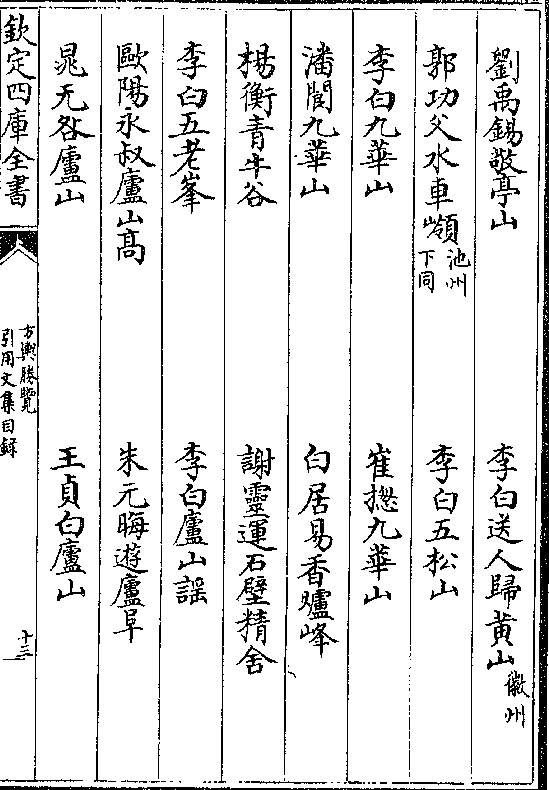 劉禹錫敬亭山　李白送人歸黄山徽州
郭功父水車嶺池州下同　李白五松山
李白九華山　崔揔九華山
潘閬九華山　白居易香爐峰
楊衡青牛谷　謝靈運石壁精舍
李白五老峯　李白廬山謡
歐陽永叔廬山髙　朱元晦遊廬阜
晁无咎廬山　王貞白廬山
欽定四庫全書
方輿勝覽
引用文集目錄
十三